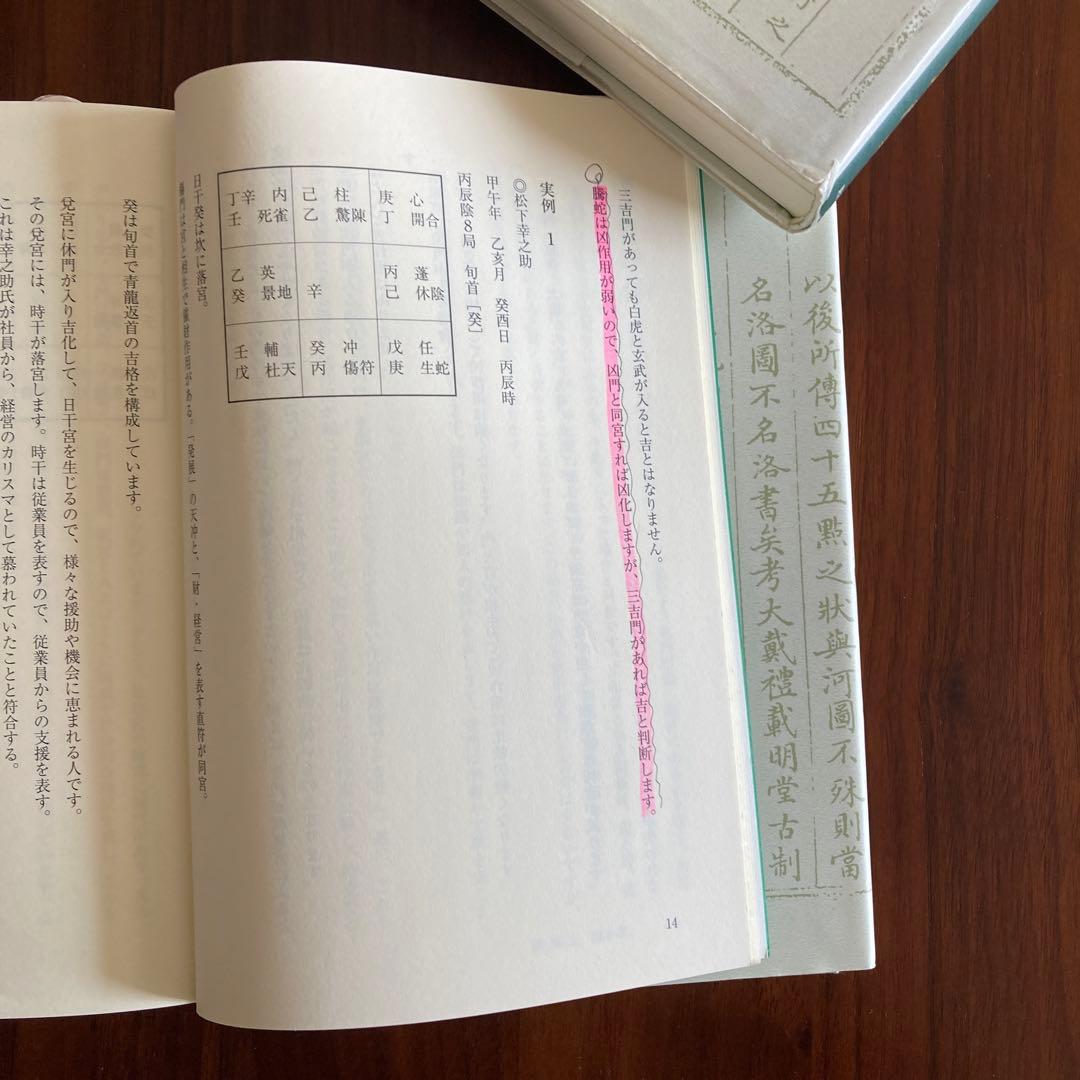 三吉門があっても白虎と玄武が入ると吉とはなりません。
騰蛇は凶作用が弱いので、凶門と同宮すれば凶化しますが、三吉門があれば吉と判断します。
実例 1
◎松下幸之助
甲午年 乙亥月 癸酉日 丙辰時
丙辰陰8局 旬首「癸」
丁辛 内 己 柱 庚 心
壬 死雀 乙 驚陳 丁 開合
乙 英 丙 蓬
癸 景地 辛 己 休陰
壬 輔 癸 冲 戊 任
戊 杜天 丙 傷符 庚 生蛇
日干癸は坎に落宮。
傷門は宮と相生で催財作用がある。「発展」の天冲と、「財・経営」を表す直符が同宮。
14
癸は旬首で青龍返首の吉格を構成しています。
兌宮に休門が入り吉化して、日干宮を生じるので、様々な援助や機会に恵まれる人です。
その兌宮には、時干が落宮します。時干は従業員を表すので、従業員からの支援を表す。
これは幸之助氏が社員から、経営のカリスマとして慕われていたことと符合する。
以後所傳四十五點之狀與河圖不殊則當
名洛圖不名洛書矣考大戴禮載明堂古制
之